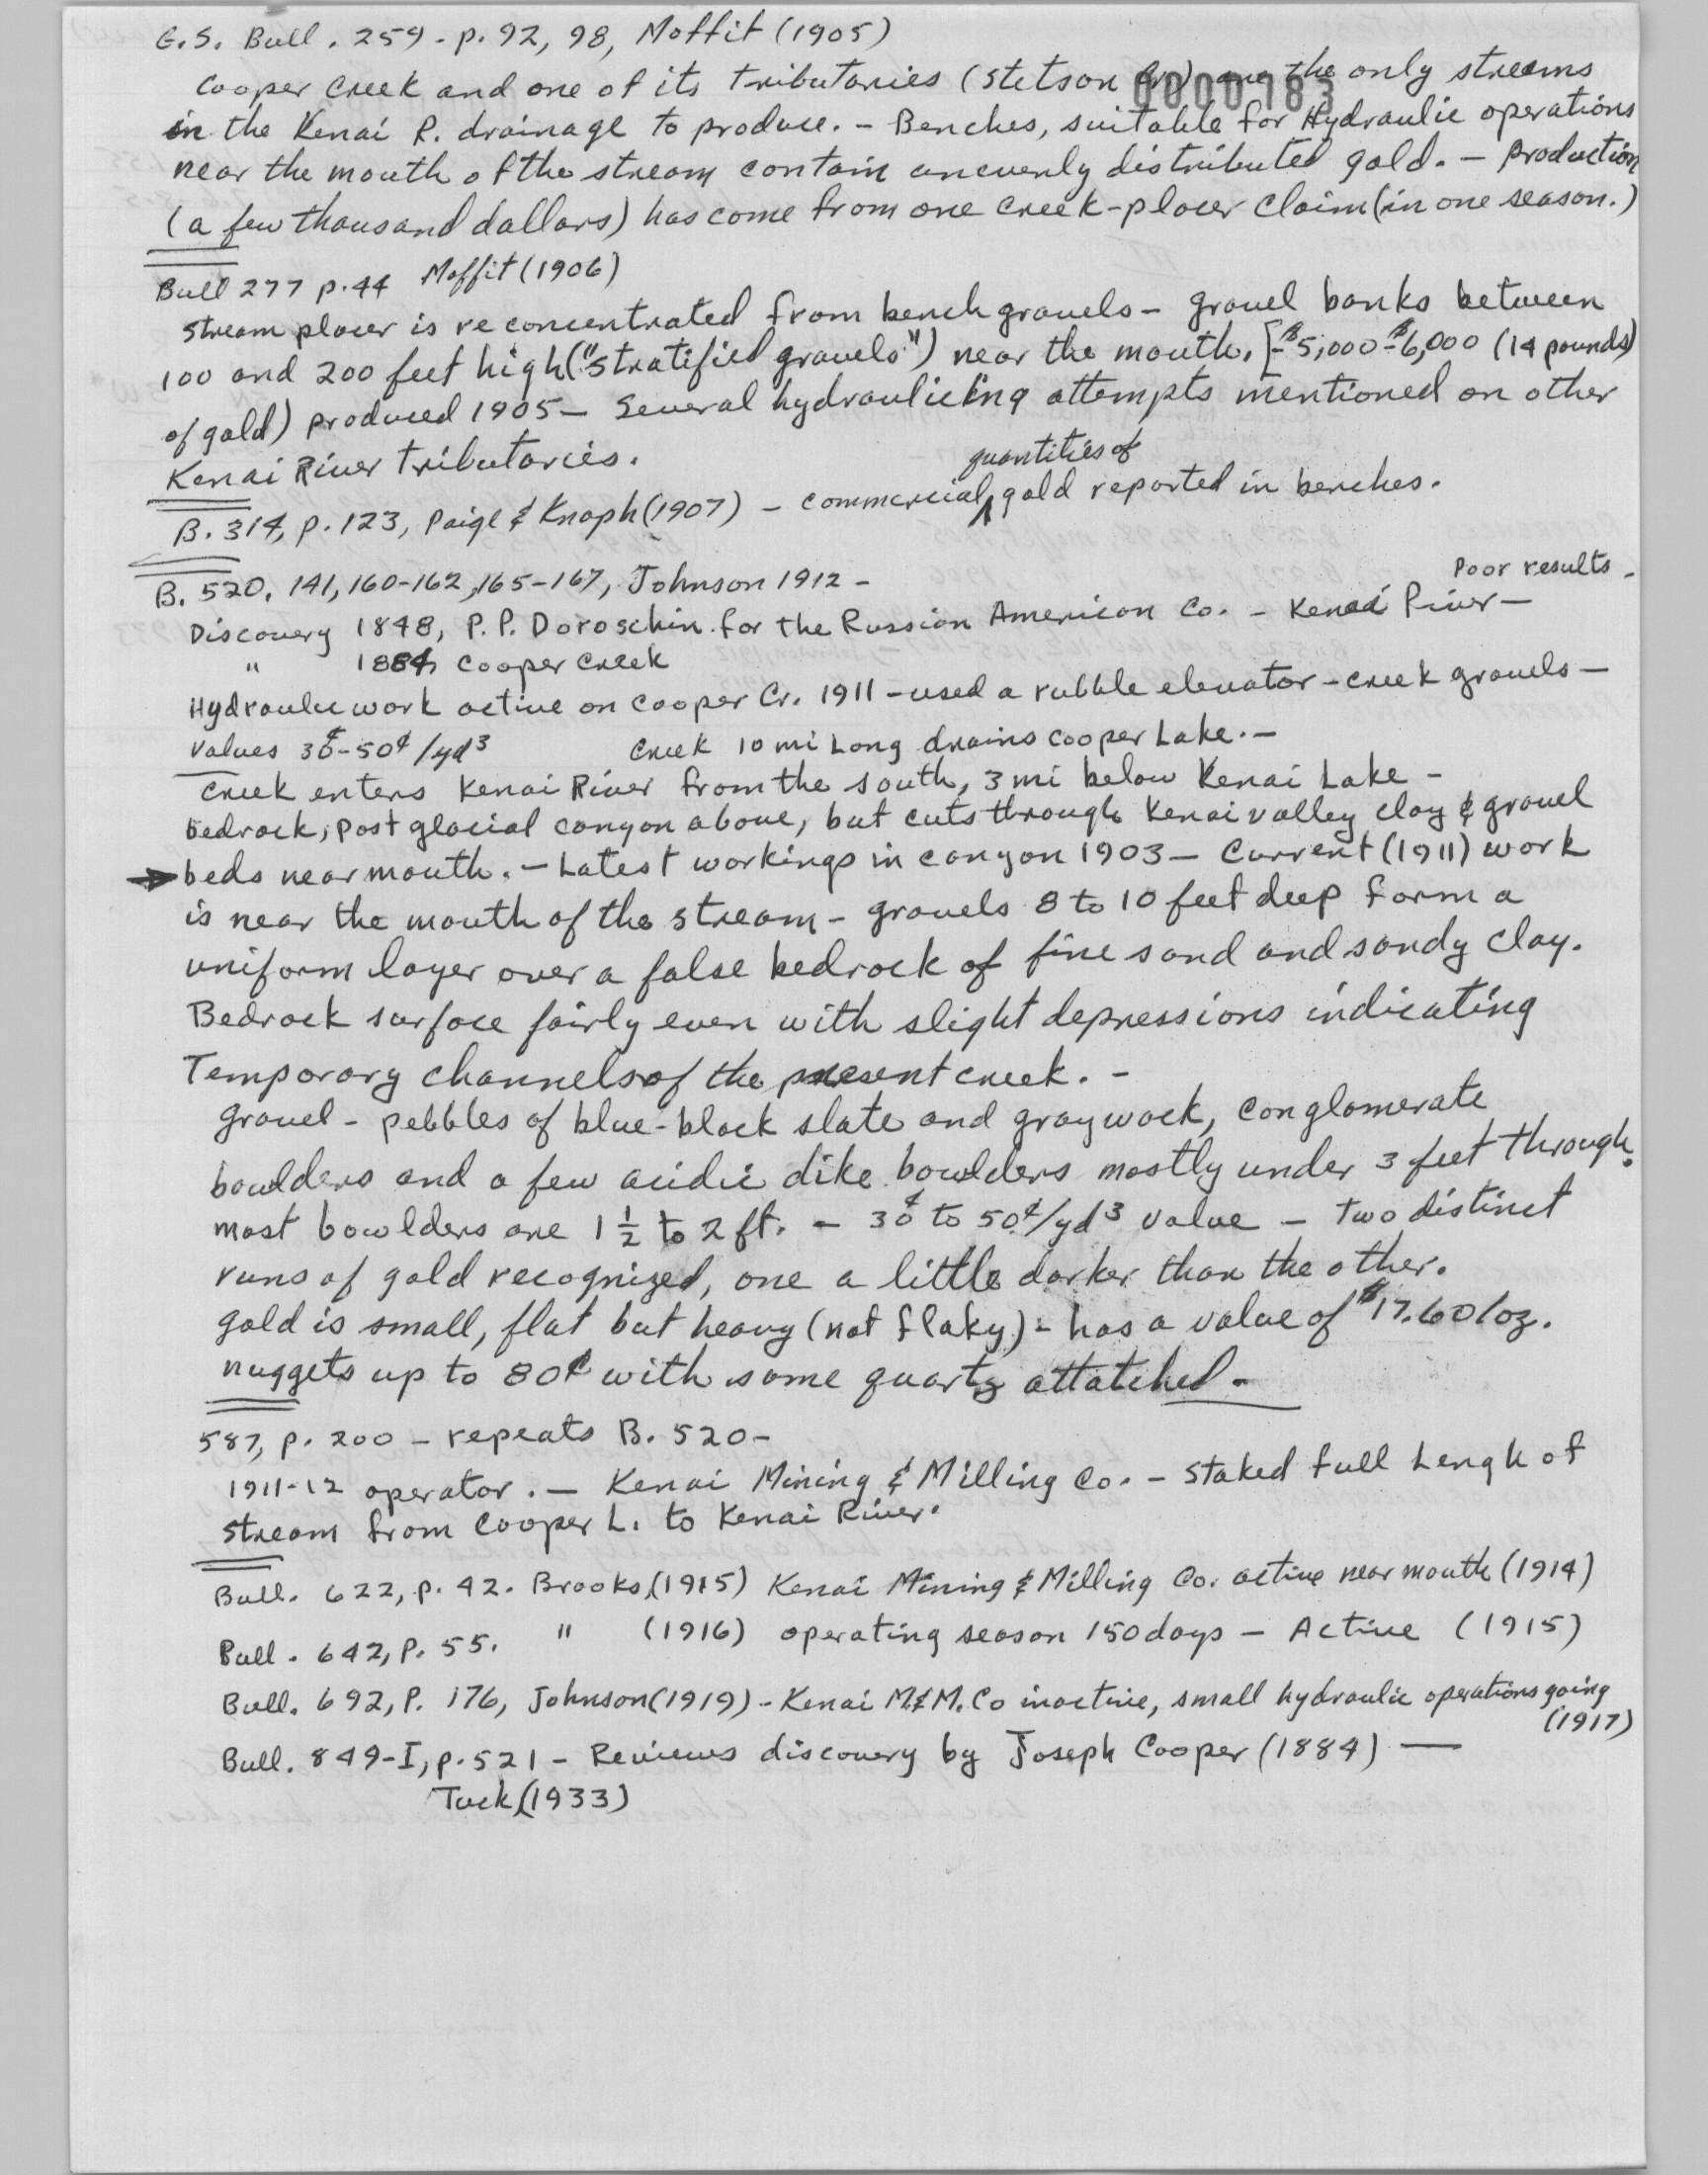 G.S. Bull. 259 - p. 92, 98, Moffit (1905)
0000183
Cooper Creek and one of its tributaries (Stetson Cr) are the only streams
in the Kenai R. drainage to produce. - Benches, suitable for Hydraulic operations
near the mouth of the stream contain unevenly distributed gold. - production
(a few thousand dollars) has come from one creek-placer claim (in one season.)
Bull 277 p. 44 Moffit (1906)
stream placer is reconcentrated from bench gravels - gravel banks between
100 and 200 feet high ("stratified gravels") near the mouth. [-$5,000-$6,000 (14 pounds)
of gold) produced 1905 - Several hydraulicking attempts mentioned on other
Kenai River tributaries.
quantities of
B. 314, p. 123, Paige & Knoph (1907) - commercial ^ gold reported in benches.
B. 520, 141, 160-162, 165-167, Johnson 1912 -
Poor results -
Discovery 1848, P. P. Doroschin for the Russian American Co. - Kenai River -
" 1884, Cooper Creek
Hydraulic work active on Cooper Cr. 1911 - used a rubble elevator - creek gravels -
values 30¢-50¢/yd3 Creek 10 mi Long drains Cooper Lake. -
Creek enters Kenai River from the south, 3 mi below Kenai Lake -
bedrock, post glacial canyon above, but cuts through Kenai valley clay & gravel
→ beds near mouth. - Latest workings in canyon 1903 - Current (1911) work
is near the mouth of the stream - gravels 8 to 10 feet deep form a
uniform layer over a false bedrock of fine sand and sandy clay.
Bedrock surface fairly even with slight depressions indicating
Temporary channels of the present creek. -
gravel - pebbles of blue-black slate and graywack, conglomerate
boulders and a few acidic dike boulders mostly under 3 feet through.
most bowlders are 1 1/2 to 2 ft. - 30¢ to 50¢/yd3 value - Two distinct
runs of gold recognized, one a little darker than the other.
gold is small, flat but heavy (not flaky) - has a value of $17.60/oz.
nuggets up to 80¢ with some quartz attatched -
587, p. 200 - repeats B. 520 -
1911-12 operator. - Kenai Mining & Milling Co. - Staked full Lengh of
stream from Cooper L. to Kenai River.
Bull. 622, p. 42. Brooks, (1915) Kenai Mining & Milling Co. active near mouth (1914)
Bull. 642, P. 55. " (1916) operating season 150 days - Active (1915)
Bull. 692, P. 176, Johnson (1919) - Kenai M.&M. Co inactive, small hydraulic operations going
(1917)
Bull. 849-I, p. 521 - Reviews discovery by Joseph Cooper (1884) —
Tuck, (1933)